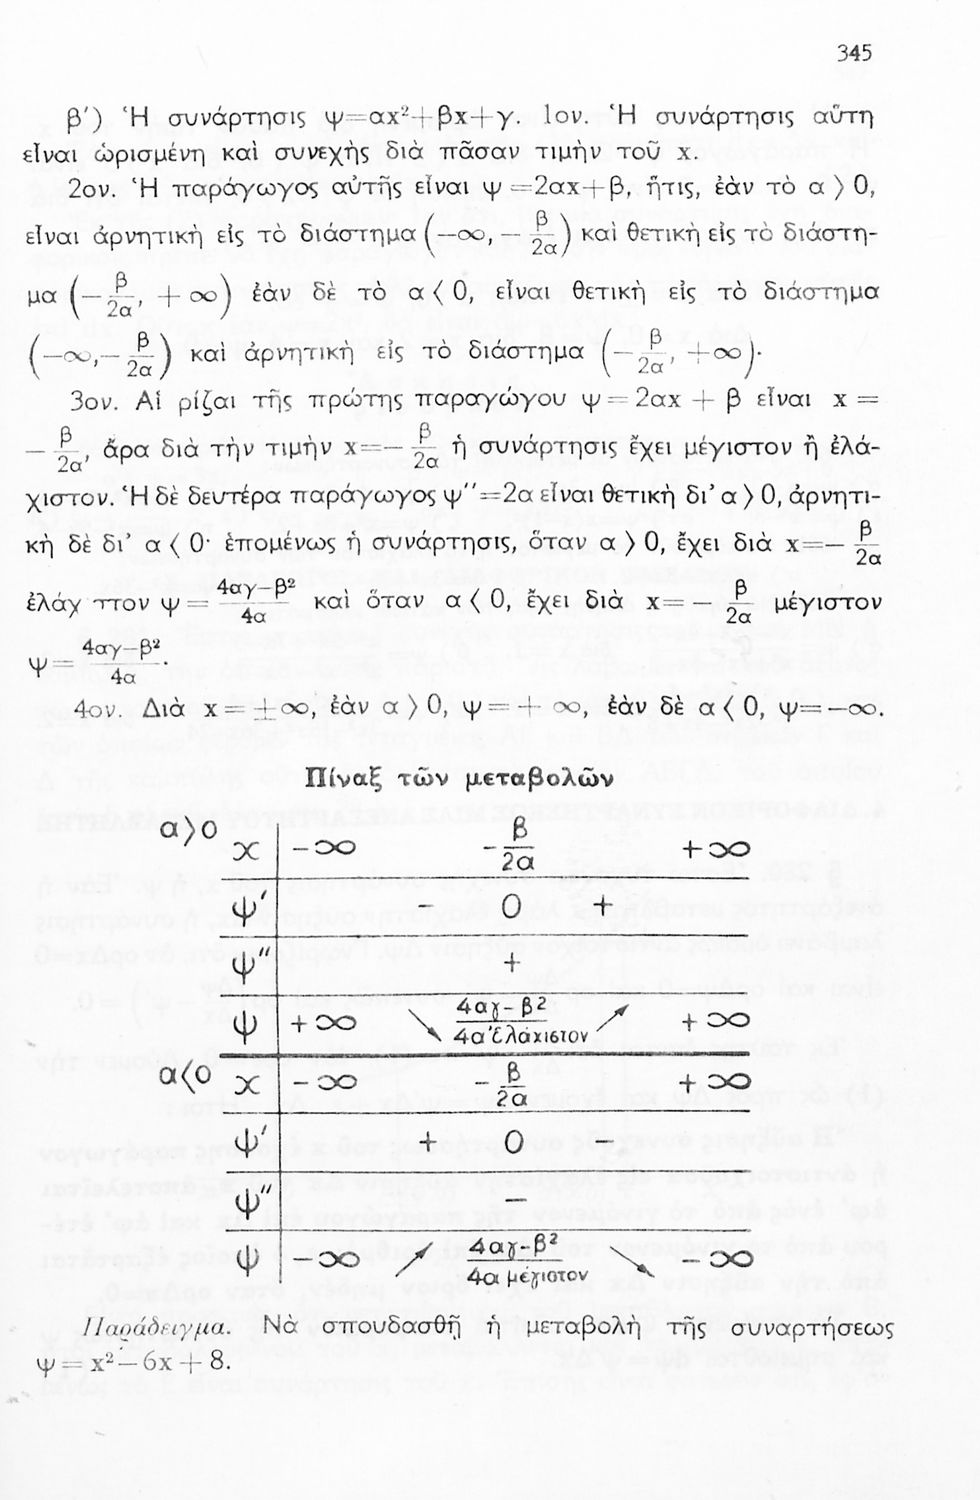 345
β′) Ἡ συνάρτησις ψ=αx²+βx+γ. 1ον. Ἡ συνάρτησις αὕτη
εἶναι ὡρισμένη καὶ συνεχὴς διὰ πᾶσαν τιμὴν τοῦ x.
2ον. Ἡ παράγωγος αὐτῆς εἶναι ψ =2αx+β, ἥτις, ἐὰν τὸ α > 0,
εἶναι ἀρνητικὴ εἰς τὸ διάστημα (−∞, − β/2α) καὶ θετικὴ εἰς τὸ διάστη-
μα (− β/2α, +∞) ἐὰν δὲ τὸ α < 0, εἶναι θετικὴ εἰς τὸ διάστημα
(−∞, − β/2α) καὶ ἀρνητικὴ εἰς τὸ διάστημα (− β/2α, +∞).
3ον. Αἱ ρίζαι τῆς πρώτης παραγώγου ψ = 2αx + β εἶναι x =
− β/2α, ἄρα διὰ τὴν τιμὴν x=− β/2α ἡ συνάρτησις ἔχει μέγιστον ἢ ἐλά-
χιστον. Ἡ δὲ δευτέρα παράγωγος ψ''=2α εἶναι θετικὴ δι' α > 0, ἀρνητι-
κὴ δὲ δι' α < 0· ἑπομένως ἡ συνάρτησις, ὅταν α > 0, ἔχει διὰ x=− β/2α
ἐλάχιστον ψ = 4αγ−β²/4α καὶ ὅταν α < 0, ἔχει διὰ x=− β/2α μέγιστον
ψ = 4αγ−β²/4α.
4ον. Διὰ x = ±∞, ἐὰν α > 0, ψ = + ∞, ἐὰν δὲ α < 0, ψ=−∞.
Πίναξ τῶν μεταβολῶν
α>0 x −∞ − β/2α +∞
ψ′ − 0 +
ψ″ +
ψ +∞ ↘ 4αγ−β²/4α ἐλάχιστον ↗ +∞
α<0 x −∞ − β/2α +∞
ψ′ + 0 −
ψ″ −
ψ −∞ ↗ 4αγ−β²/4α μέγιστον ↘ −∞
Παράδειγμα. Νὰ σπουδασθῇ ἡ μεταβολὴ τῆς συναρτήσεως
ψ = x²−6x + 8.